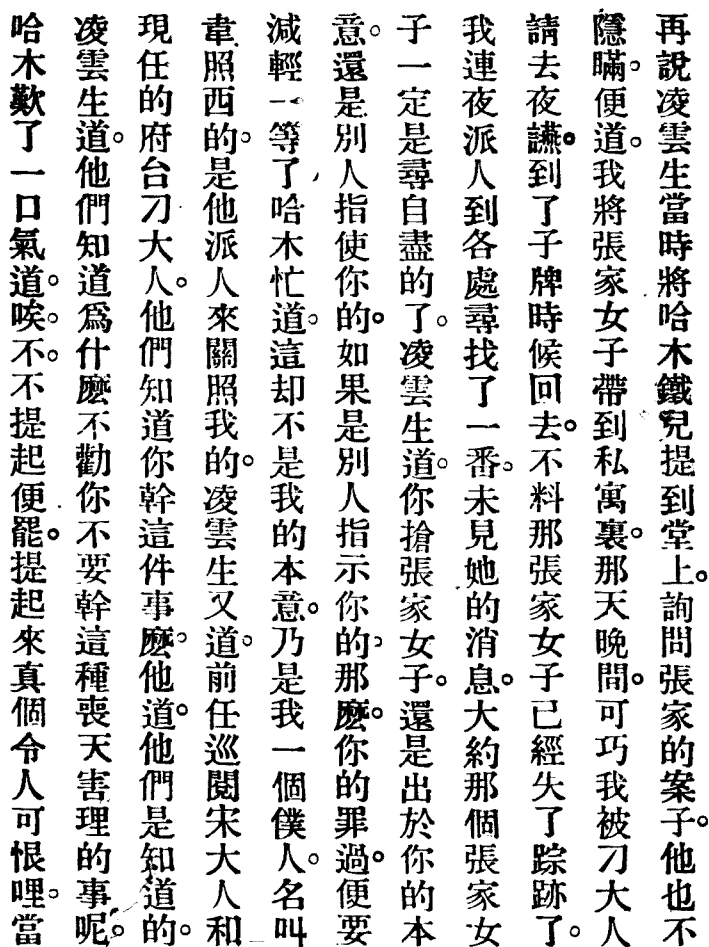 再說凌雲生當時將哈木鐵兒提到堂上。詢問張家的案子。他也不
隱瞞。便道。我將張家女子帶到私寓裏。那天晚間。可巧我被刁大人
請去夜讌。到了子牌時候回去。不料那張家女子已經失了踪跡了。
我連夜派人到各處尋找了一番。未見她的消息。大約那個張家女
子一定是尋自盡的了。凌雲生道。你搶張家女子。還是出於你的本
意。還是別人指使你的。如果是別人指示你的。那麽。你的罪過。便要
減輕一等了。哈木忙道。這却不是我的本意。乃是我一個僕人。名叫
韋照西的。是他派人來關照我的。凌雲生又道。前任巡閱宋大人和
現任的府台刁大人。他們知道你幹這件事麽。他道。他們是知道的。
凌雲生道。他們知道爲什麽不勸你不要幹這種喪天害理的事呢。
哈木歎了一口氣道。唉。不。不提起便罷。提起來真個令人可恨哩。當